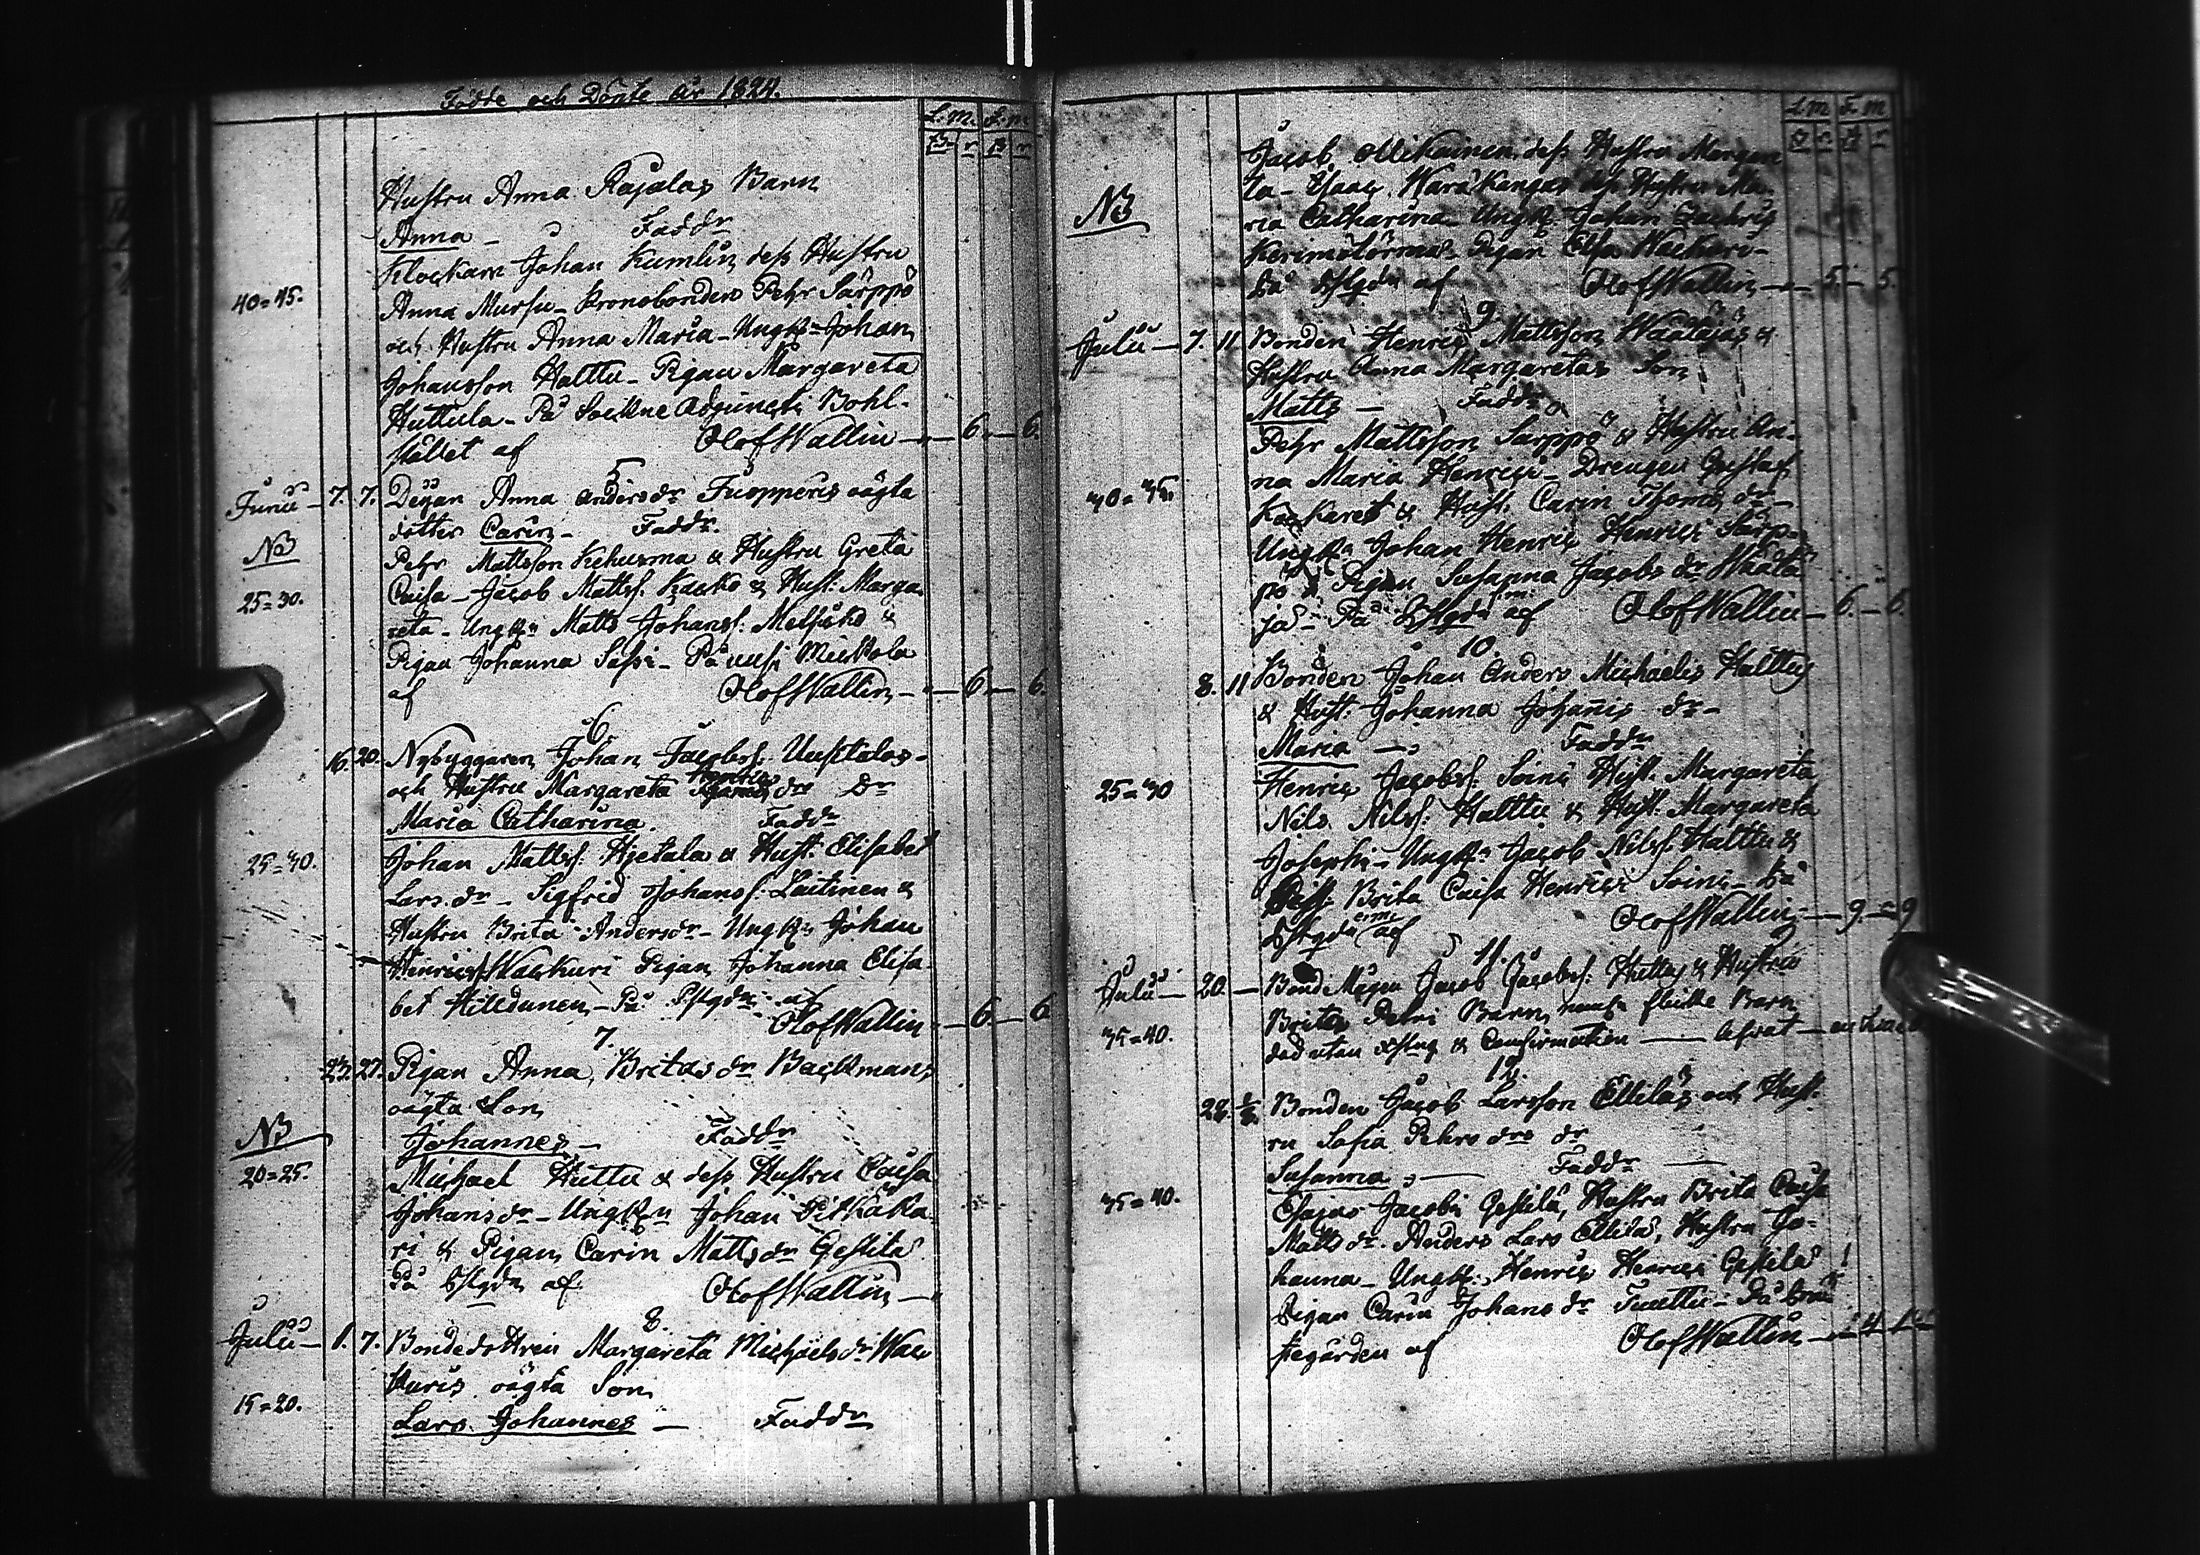 Födde och Döpte år 1824.
L. M. S. M.
Hustru Anna Rajalas Barn
Anna — Faddr
Klockarn Johan Kumlin dess Hustru
40=45.
Anna Mursu - Kronobonden Pehr Särppö
och Hustru Anna Maria - Ungk: Johan
Johansson Halttu - Pigan Margareta
Huttula - På Sockne Adjuncts Bohl-
stället af Olof Wallin — 6. — 6.
5
Junii — 7. 7. Degan Anna Andersdr Fuopperis oägta
dotter Carin - Faddr.
NB
Pehr Mattsson Kehusma & Hustru Greta
25=30.
Caisa - Jacob Mattss. Kaasko & Hust: Marga-
reta - Ungk: Matts Johanss.
Pigan Johanna - På Mickola
af Olof Wallin — 6 — 6.
6
16. 20. Nybyggaren Johan Jacobss. Uusitalos
och Hustru Margareta Henrics drs Dr
Maria Catharina. Faddr
25=30.
Johan Mattss. Hjetala & Hust: Elisabet
Lars dr - Sigfrid Johanss. Laitinen &
Hustru Brita Andersdr - Ungk: Johan
Henricss Wackuri Pigan Johanna Elisa-
bet Hiltunen - På Pstgdn af
Olof Wallin — 6 — 6
7.
23. 27. Pigan Anna Britas dr Backmans
oägta Son
NB
Johannes — Faddr
20=25.
Michael Huttu & dess Hustru Caisa
Johansdr - Ungkn Johan Pitkäka-
ri & Pigan Carin Mattsdr Gestilä
På Pstgdn af Olof Wallin —
8.
Julii — 1. 7. Bondedottren Margareta Michaels dr Wac
kuris oägta Son
15=20.
Lars Johannes — Faddr
L. M S. M
Jacob Mikkuinen dess Hustru Marga-
NB
ta - Isaac Warikangas dess Hustru Ma-
ria Catharina Ungk: Johan
Pigan Elsa Wackuri -
På Pstgdn af Olof Wallin — 5. — 5.
9
Julii — 7. 11 Bonden Henric Mattsson Waatajas &
Hustru Anna Margaretas Son
Matts — Faddr
Pehr Mattsson Särppö & Hustru An-
na Maria Henrici - Drengen Gustaf
30=35.
& Hust. Carin Thoms dr -
Ungkn Johan Henric Henrici Särp-
pö, Pigan Susanna Jacobs dr Waata
ja - På Pstgdn af Olof Wallin — 6. — 6
10.
8. 11 Bonden Johan Anders Michaelis Halttus
& Hust: Johanna Johannis dr -
Maria — Faddr
25=30
Henric Jacobss. Soini Hust. Margareta
Nils Nilss: Halttu & Hust. Margareta
Josephi - Ungkn Jacob Nilss. Halttu &
Brita Caisa Henrici Soini - På
Pstgdn af Olof Wallin — 9 — 9
11.
Julii — 20. — Bond Mågen Jacob Jacobss. Huttus & Hustru
Britas Petri Barn flicke Barn
35=40.
död utan Pstng & Confirmation —
12.
28. 1/8. Bonden Jacob Larsson Ellilas och Hust-
ru Sofia Pehrs drs dr
Susanna — Faddr —
35=40.
Esajas Jacobi Gestilä, Hustru Brita Caisa
Matts dr. Anders Lars Ellilä, Hustru Jo-
hanna - Ungk: Henric Henrici Gestilä
Pigan Carin Johans dr Tuuttu - På Präs-
tegården af Olof Wallin —